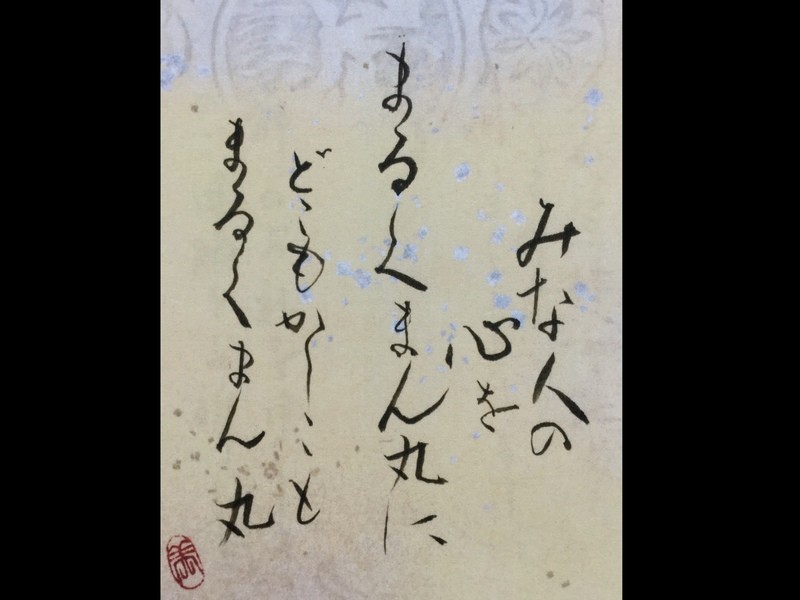 みな人の
心を
まるくまん丸に
どこもかしこも
まるくまん丸